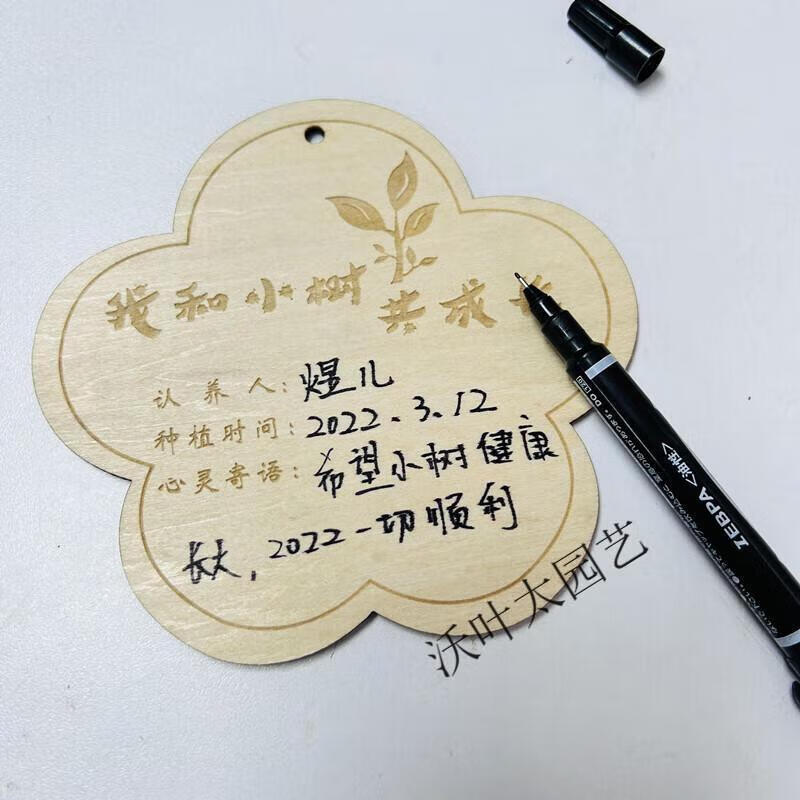 我和小树
共成长
认养人:煜儿
种植时间:2022.3.12
心灵寄语:希望小树健康
长大,2022一切顺利
沃叶太园艺
ZEBPA <油性>